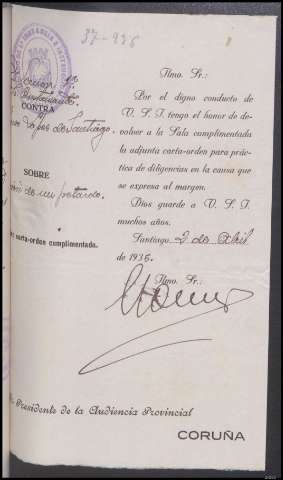 37-936
CONTRA
Lopez de Santiago.
SOBRE
de un petardo.
carta-orden cumplimentada.
Ilmo. Sr.:
Por el digno conducto de
V. S. I. tengo el honor de de-
volver a la Sala cumplimentada
la adjunta carta-orden para prác-
tica de diligencias en la causa que
se expresa al margen.
Dios guarde a V. S. I.
muchos años.
Santiago 2 de Abril
de 1936.
Ilmo. Sr.:
Presidente de la Audiencia Provincial
CORUÑA